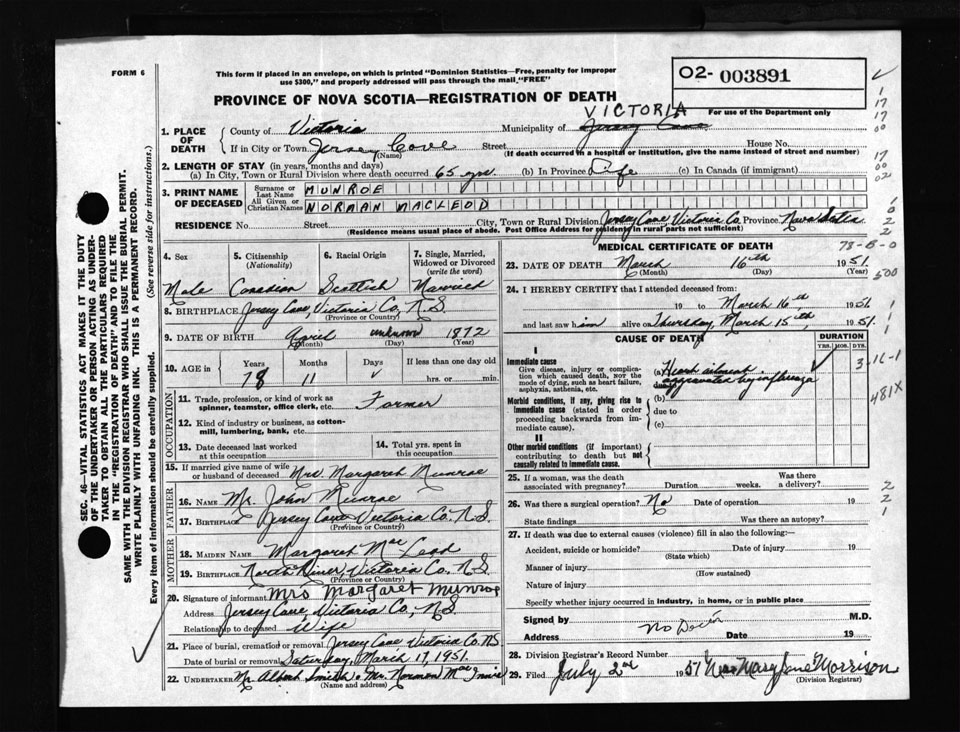 FORM 6
This form if placed in an envelope, on which is printed "Dominion Statistics—Free, penalty for improper
use $300," and properly addressed will pass through the mail "FREE"
O2- 003891
For use of the Department only
PROVINCE OF NOVA SCOTIA—REGISTRATION OF DEATH
VICTORIA
1. PLACE OF DEATH { County of Victoria Municipality of Jersey Cove
If in City or Town Jersey Cove Street House No.
(Name) (If death occurred in a hospital or institution, give the name instead of street and number)
2. LENGTH OF STAY (in years, months and days)
(a) In City, Town or Rural Division where death occurred 65 yrs. (b) In Province Life (c) In Canada (if immigrant)
3. PRINT NAME OF DECEASED { Surname or Last Name MUNROE
All Given or Christian Names NORMAN MACLEOD
RESIDENCE No. Street City, Town or Rural Division Jersey Cove Victoria Co Province Nova Scotia
(Residence means usual place of abode. Post Office Address for residency in rural parts not sufficient)
4. Sex 5. Citizenship (Nationality) 6. Racial Origin 7. Single, Married, Widowed or Divorced (write the word)
Male Canadian Scottish Married
8. BIRTHPLACE Jersey Cove, Victoria Co, N.S.
(Province or Country)
9. DATE OF BIRTH April unknown 1872
(Month) (Day) (Year)
10. AGE in { Years Months Days If less than one day old
78 11 hrs. or min.
OCCUPATION
11. Trade, profession, or kind of work as spinner, teamster, office clerk, etc. Farmer
12. Kind of industry or business, as cotton-mill, lumbering, bank, etc.
13. Date deceased last worked at this occupation 14. Total yrs. spent in this occupation.
15. If married give name of wife or husband of deceased Mrs. Margaret Munroe
FATHER
16. NAME Mr. John Munroe
17. BIRTHPLACE Jersey Cove Victoria Co. N.S.
(Province or Country)
MOTHER
18. MAIDEN NAME Margaret Mac Leod
19. BIRTHPLACE North River Victoria Co. N.S.
(Province or Country)
20. Signature of informant Mrs Margaret Munroe
Address Jersey Cove, Victoria Co, NS
Relationship to deceased Wife
21. Place of burial, cremation or removal Jersey Cove Victoria Co. NS
Date of burial or removal Saturday, March 17, 1951
22. UNDERTAKER Mr Albert Smith & Mr. Norman Mac Innis
(Name and address)
MEDICAL CERTIFICATE OF DEATH
78-B-0
23. DATE OF DEATH March 16th 1951.
(Month) (Day) (Year)
500
24. I HEREBY CERTIFY that I attended deceased from:
19 to March 16th 1951
and last saw him alive on Thursday, March 15th, 1951.
CAUSE OF DEATH
DURATION
YRS. MOS. DYS.
I
Immediate cause
Give disease, injury or complication which caused death, nor the mode of dying, such as heart failure, asphyxia, asthenia, etc.
(a) Heart ailment 3
due to aggravated by influenza
481X
Morbid conditions, if any, giving rise to immediate cause (stated in order proceeding backwards from immediate cause).
(b)
due to
(c)
II
Other morbid conditions (if important) contributing to death but not causally related to immediate cause.
25. If a woman, was the death associated with pregnancy? Duration weeks. Was there a delivery?
26. Was there a surgical operation? No Date of operation 19
State findings Was there an autopsy?
27. If death was due to external causes (violence) fill in also the following:
Accident, suicide or homicide? Date of injury 19
(State which)
Manner of injury
(How sustained)
Nature of injury
Specify whether injury occurred in industry, in home, or in public place
Signed by M.D.
No Doctor
Address Date 19
28. Division Registrar's Record Number
29. Filed July 2nd 1951 Mrs Mary Jane Morrison
(Division Registrar)
SEC. 46—VITAL STATISTICS ACT MAKES IT THE DUTY
OF THE UNDERTAKER OR PERSON ACTING AS UNDER-
TAKER TO OBTAIN ALL THE PARTICULARS REQUIRED
IN THE "REGISTRATION OF DEATH" AND TO FILE THE
SAME WITH THE DIVISION REGISTRAR WHO SHALL ISSUE THE BURIAL PERMIT.
WRITE PLAINLY WITH UNFADING INK. THIS IS A PERMANENT RECORD.
Every item of information should be carefully supplied. (See reverse side for instructions.)